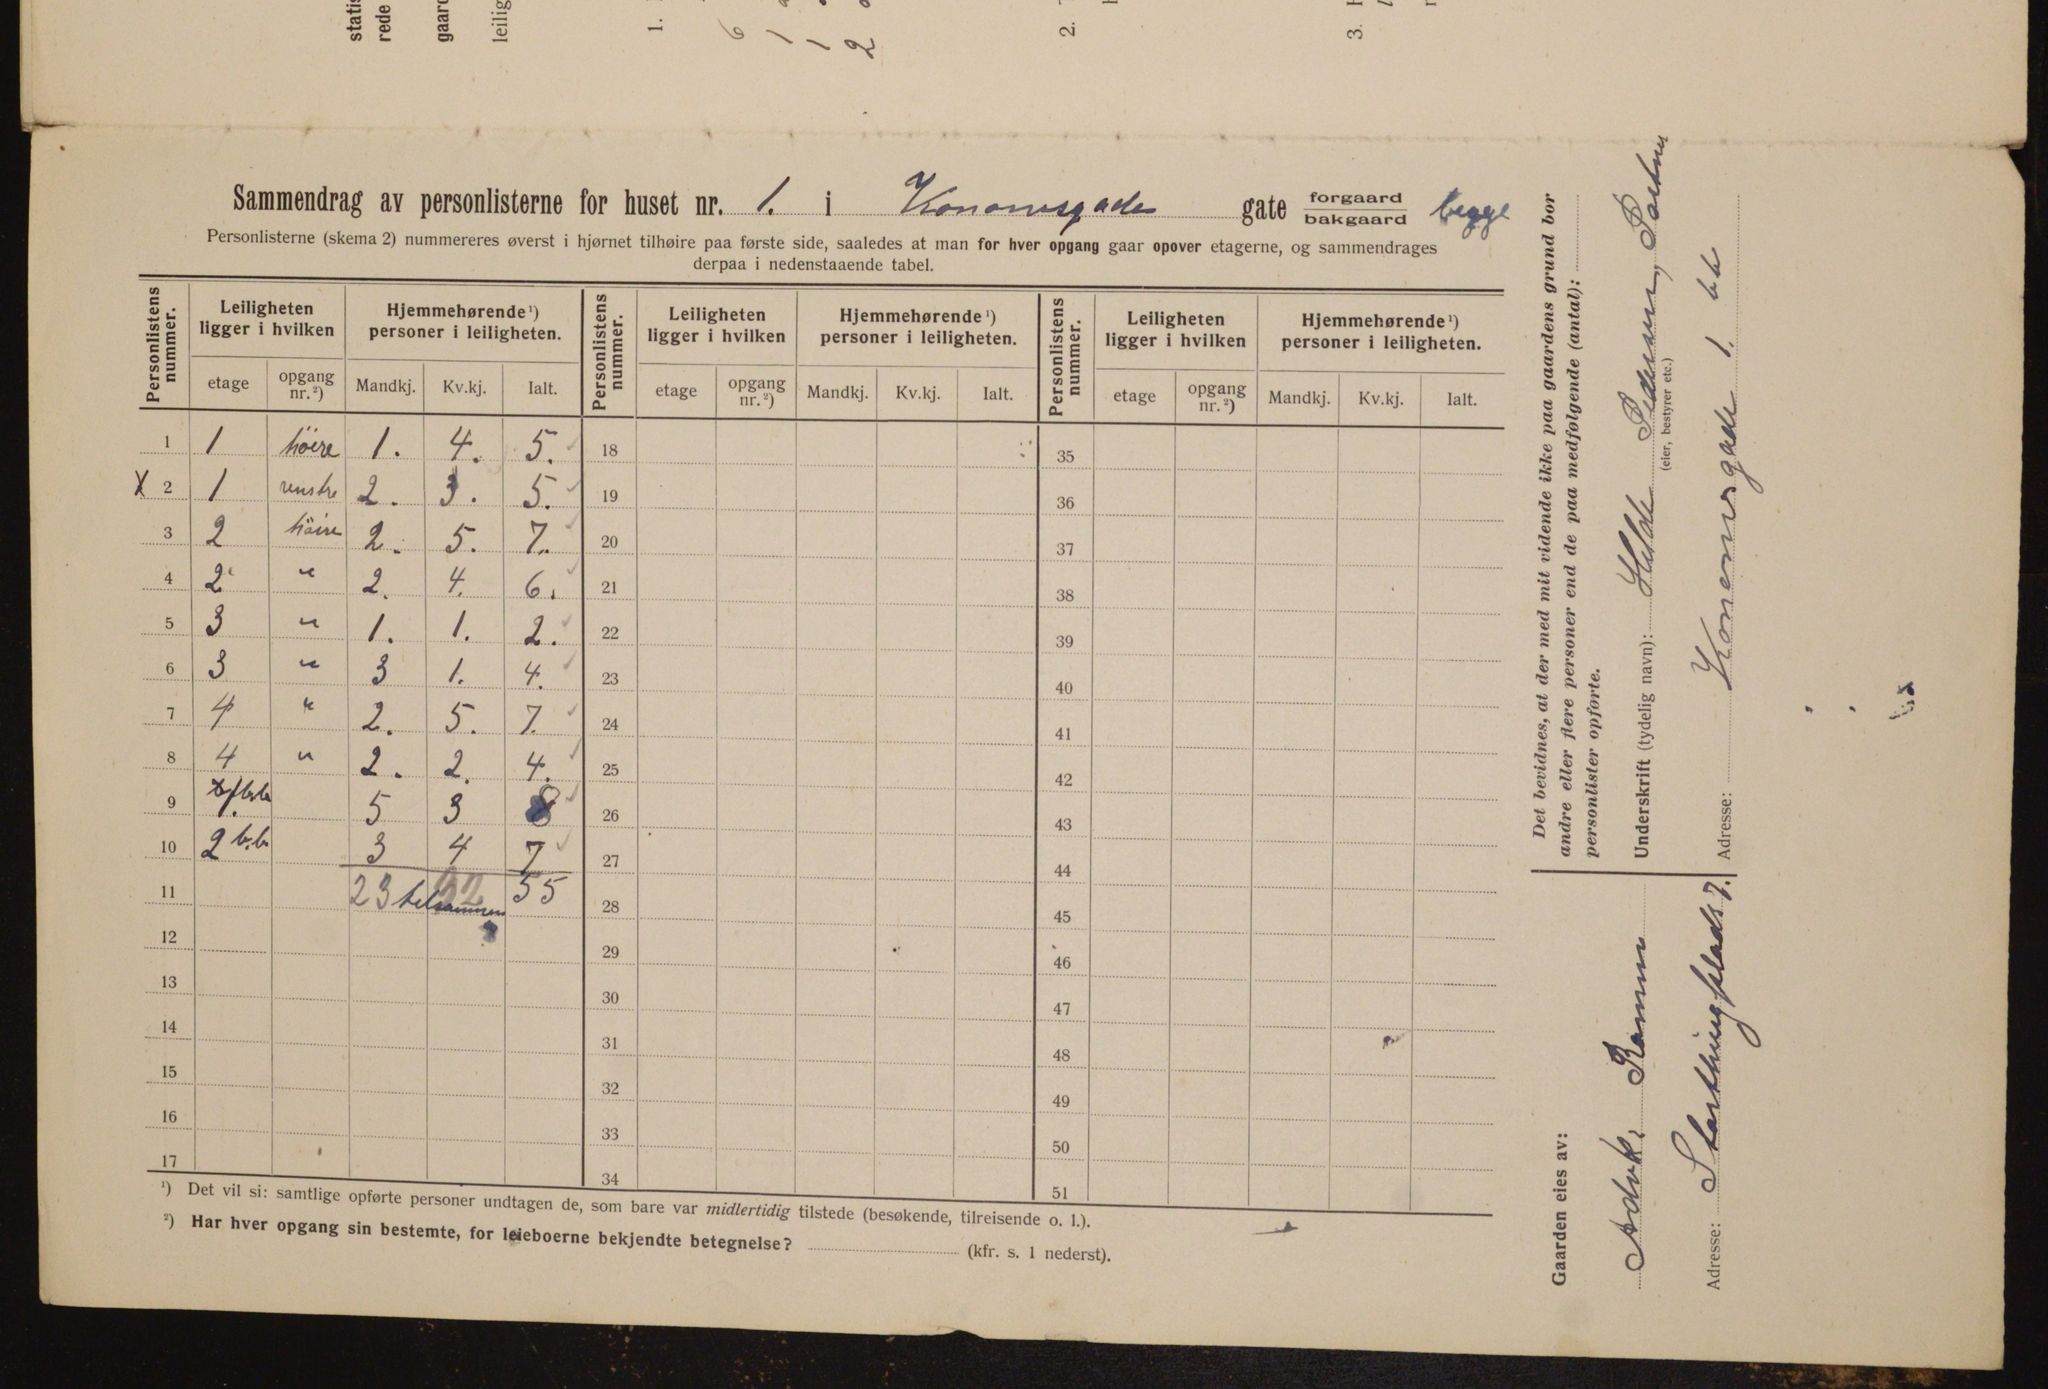 statis
rede
gaard
leilig
1.
6
1
1
2
2.
3.
Sammendrag av personlisterne for huset nr. 1. i Kononvsgaden gate forgaard bakgaard begge
Personlisterne (skema 2) nummereres øverst i hjørnet tilhøire paa første side, saaledes at man for hver opgang gaar opover etagerne, og sammendrages
derpaa i nedenstaaende tabel.
Personlistens nummer. Leiligheten ligger i hvilken Hjemmehørende ¹) personer i leiligheten. Personlistens nummer. Leiligheten ligger i hvilken Hjemmehørende ¹) personer i leiligheten. Personlistens nummer. Leiligheten ligger i hvilken Hjemmehørende ¹) personer i leiligheten.
etage opgang nr. ²) Mandkj. Kv.kj. Ialt. etage opgang nr. ²) Mandkj. Kv.kj. Ialt. etage opgang nr. ²) Mandkj. Kv.kj. Ialt.
1 1 höire 1. 4. 5. 18 35
X 2 1 venstre 2. 3. 5. 19 36
3 2 höire 2. 5. 7. 20 37
4 2 " 2. 4. 6. 21 38
5 3 " 1. 1. 2. 22 39
6 3 " 3 1. 4. 23 40
7 4 " 2. 5. 7. 24 41
8 4 " 2. 2. 4. 25 42
9 1. 5 3 8 26 43
10 2 b.b. 3 4 7 27 44
11 23 tilsammen 32 55 28 45
12 29 46
13 30 47
14 31 48
15 32 49
16 33 50
17 34 51
¹) Det vil si: samtlige opførte personer undtagen de, som bare var midlertidig tilstede (besøkende, tilreisende o. l.).
²) Har hver opgang sin bestemte, for leieboerne bekjendte betegnelse? (kfr. s. 1 nederst).
Det bevidnes, at der med mit vidende ikke paa gaardens grund bor
andre eller flere personer end de paa medfølgende (antal):
personlister opførte.
Underskrift (tydelig navn): Hilda Pedersen,
(eier, bestyrer etc.)
Adresse: Konowsgade 1. bb
Gaarden eies av:
Advk. Ramm
Adresse: Stortingsplads 7.